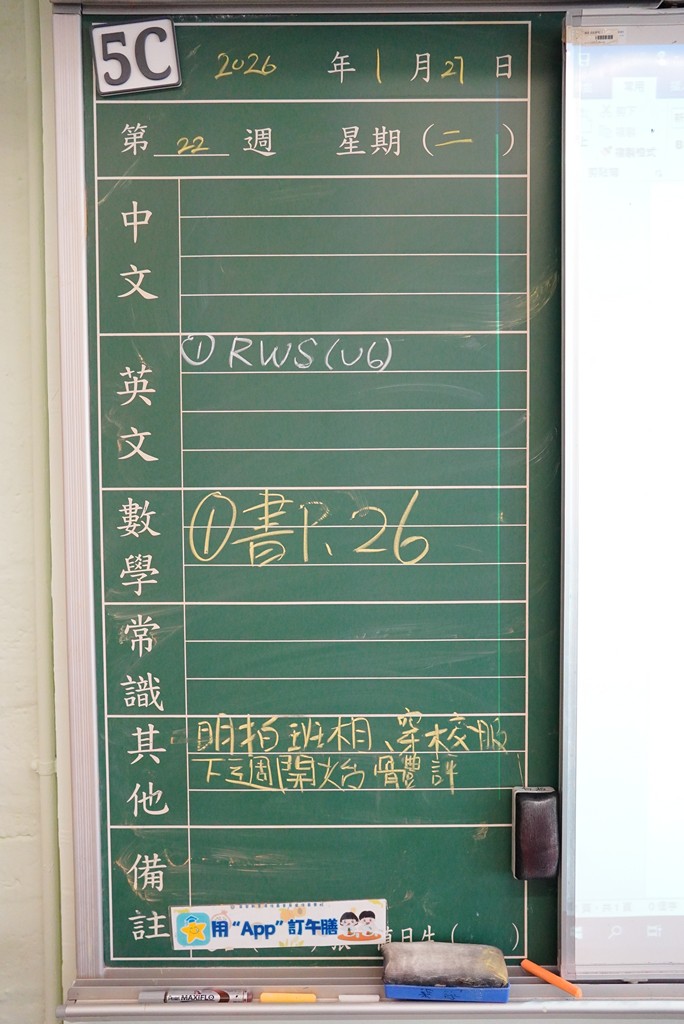 5C
2026 年 1 月 27 日
第 22 週 星期 (二)
中文
英文
① RWS(U6)
數學
① 書P. 26
常識
其他
明拍班相、穿校服
下週開始 體評
備註
用 “App” 訂午膳
日生 ( )
MAXIFLO